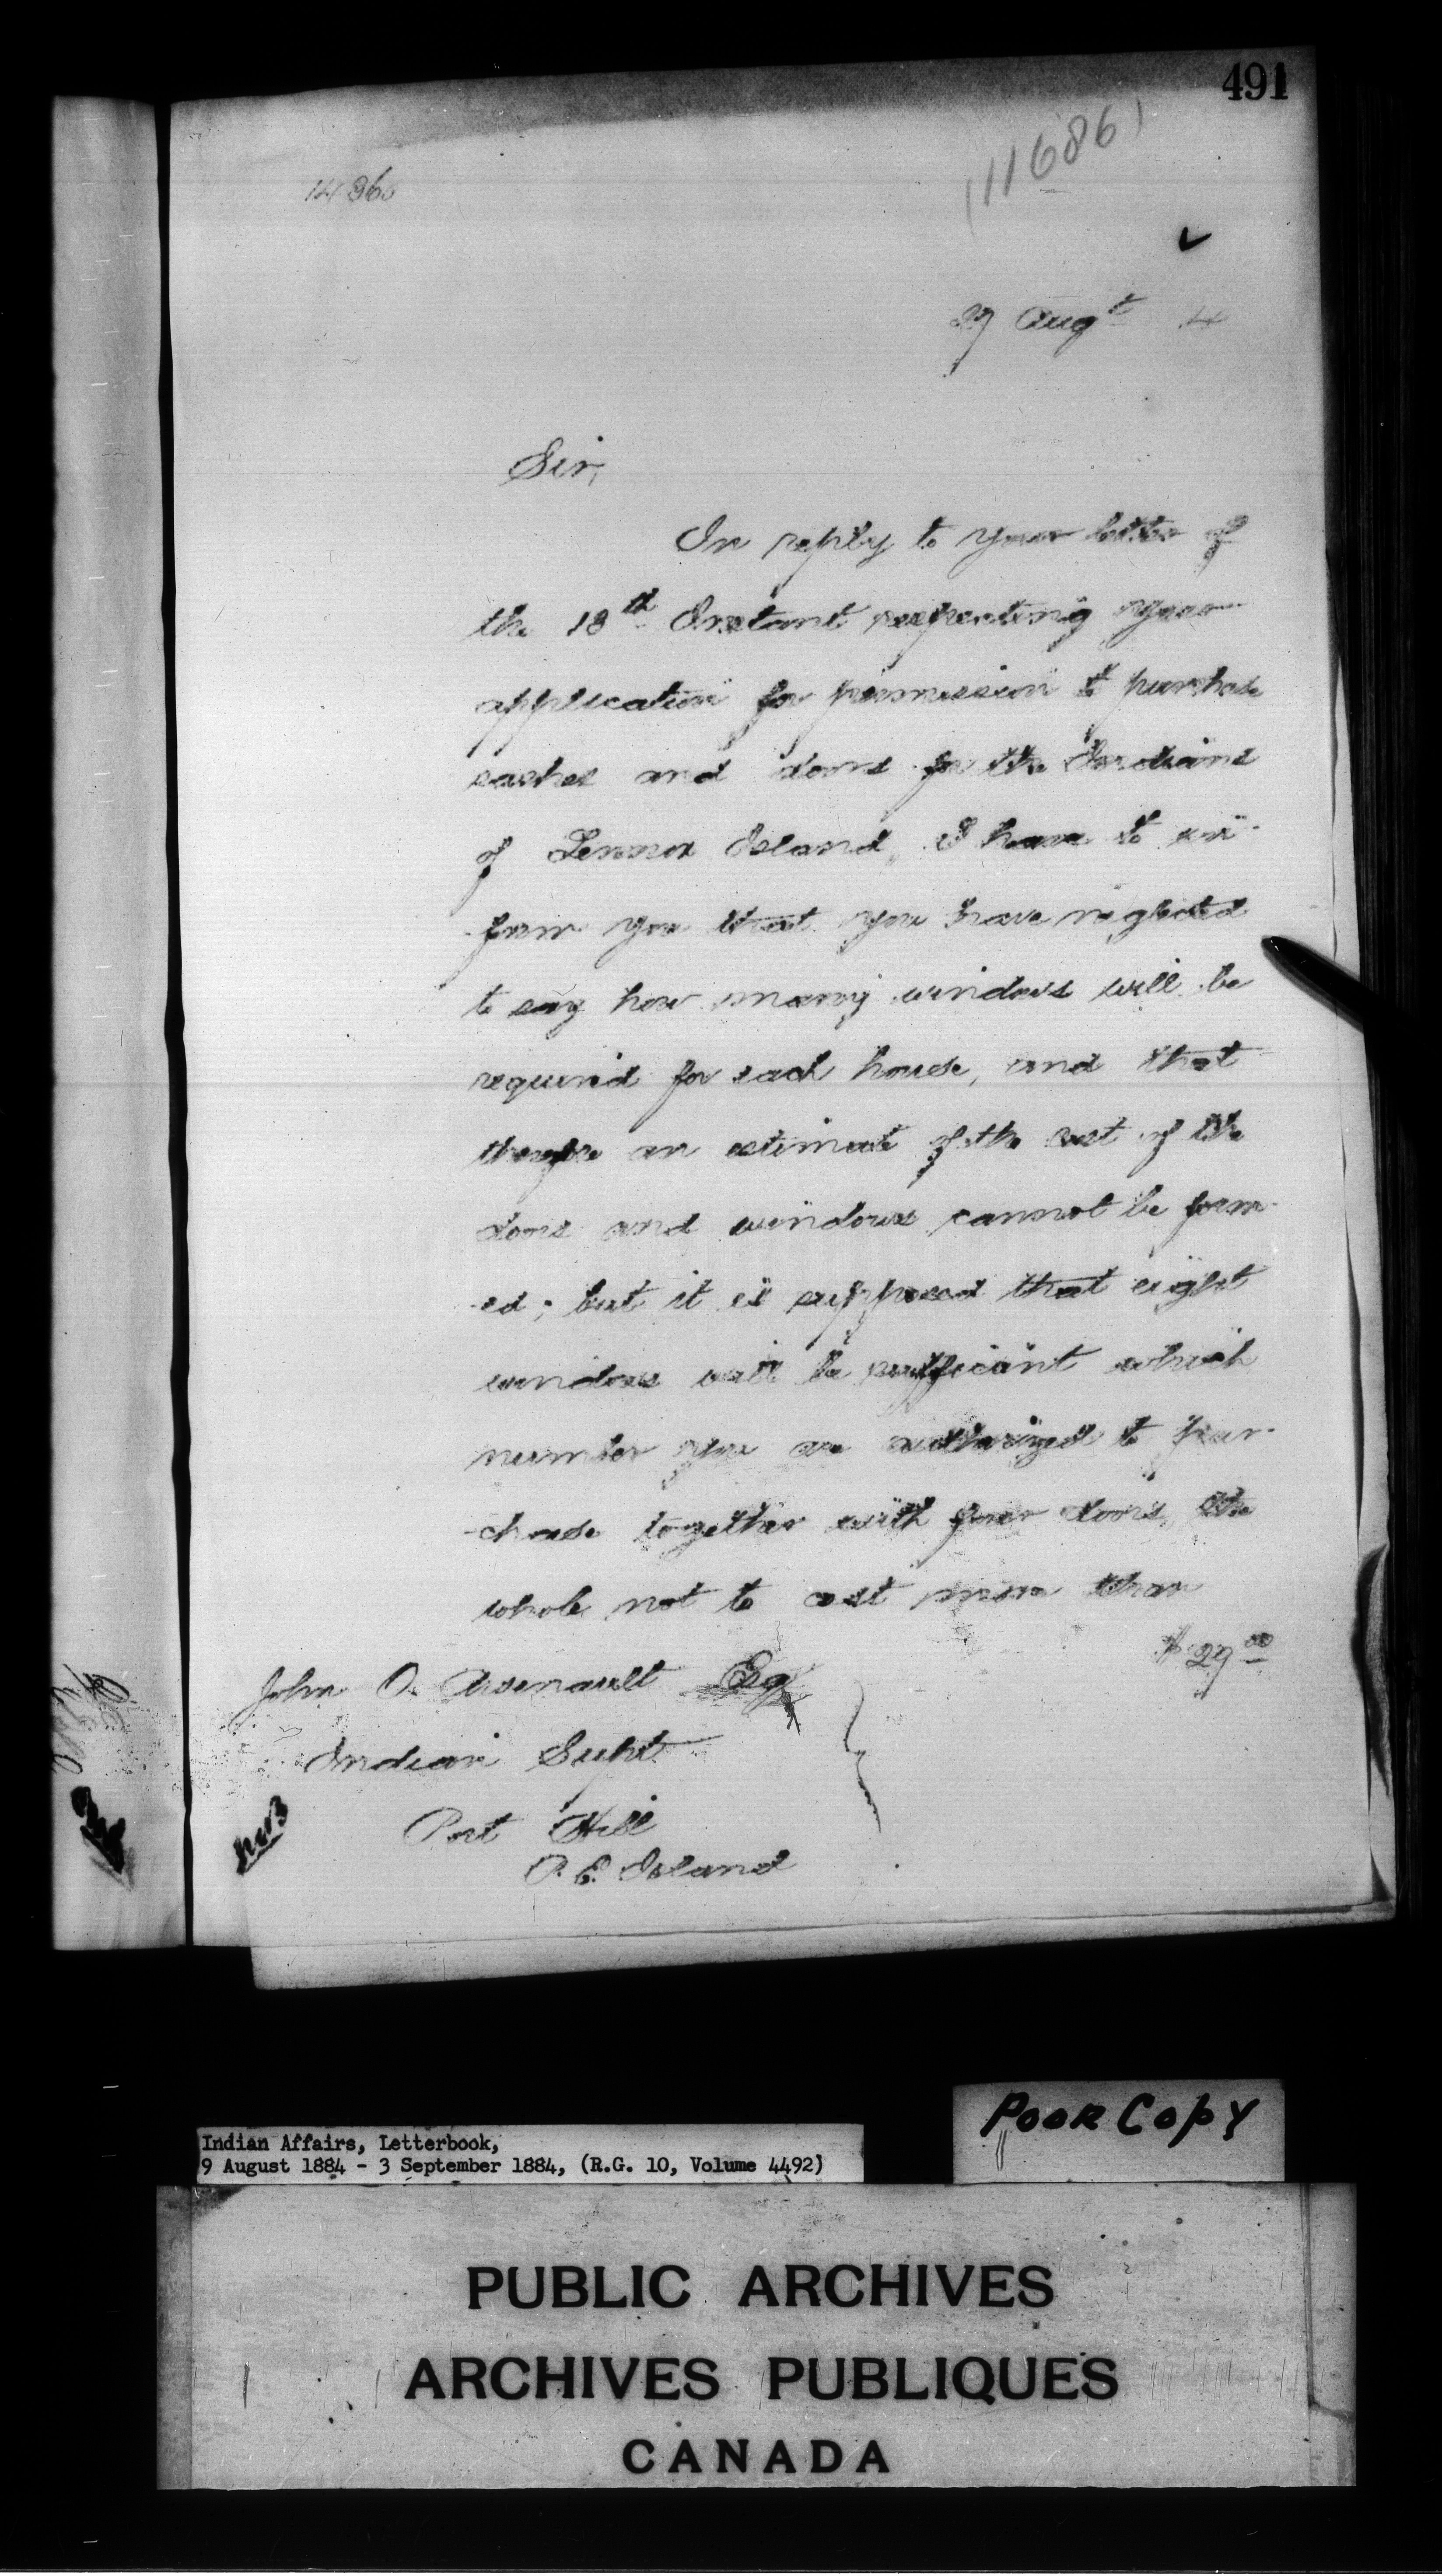 491
(11686)
14360
27 Augt 4
Sir,
In reply to your letter of
the 18th Instant respecting your
application for permission to purchase
sashes and doors for the Indians
of Lennox Island, I have to in-
-form you that you have neglected
to say how many windows will be
required for each house, and that
therefore an estimate of the cost of the
doors and windows cannot be form-
-ed; but it is supposed that eight
windows will be sufficient which
number you are authorized to pur-
-chase together with four doors, the
whole not to cost more than
$29.00
John O. Arsenault Esq
Indian Supt
Port Hill
P. E. Island
Poor Copy
Indian Affairs, Letterbook,
9 August 1884 - 3 September 1884, (R.G. 10, Volume 4492)
PUBLIC ARCHIVES
ARCHIVES PUBLIQUES
CANADA